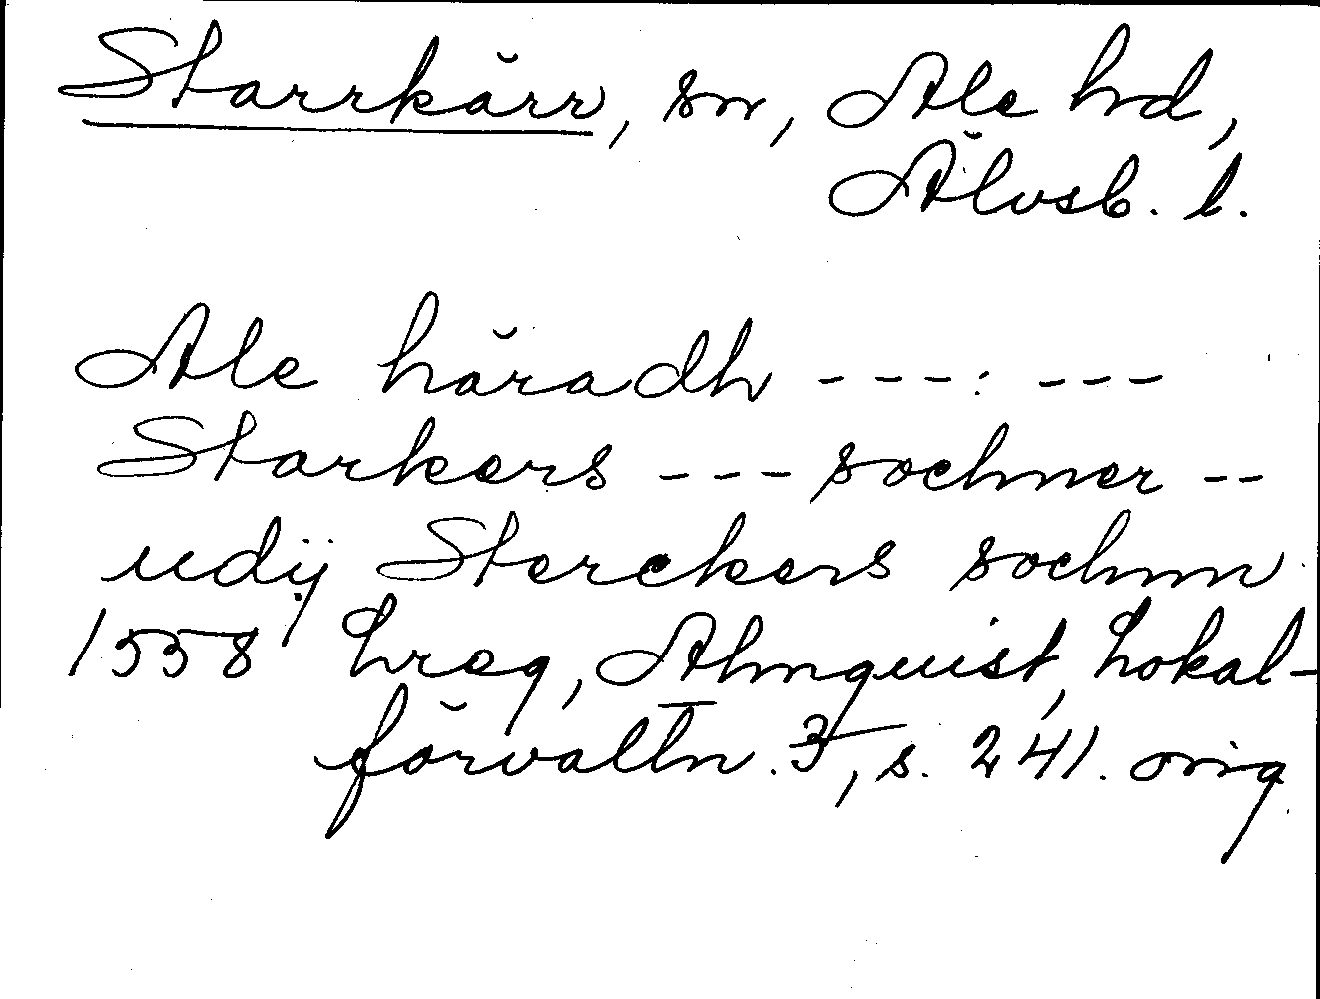 Starrkärr, sn, Ale hd,
Älvsb. l.
Ale häradh ---: ---
Starkers --- sochner --
udij Sterckers sochnn
1558 Lreg, Almquist, Lokal-
förvaltn. 3, s. 241. orig.